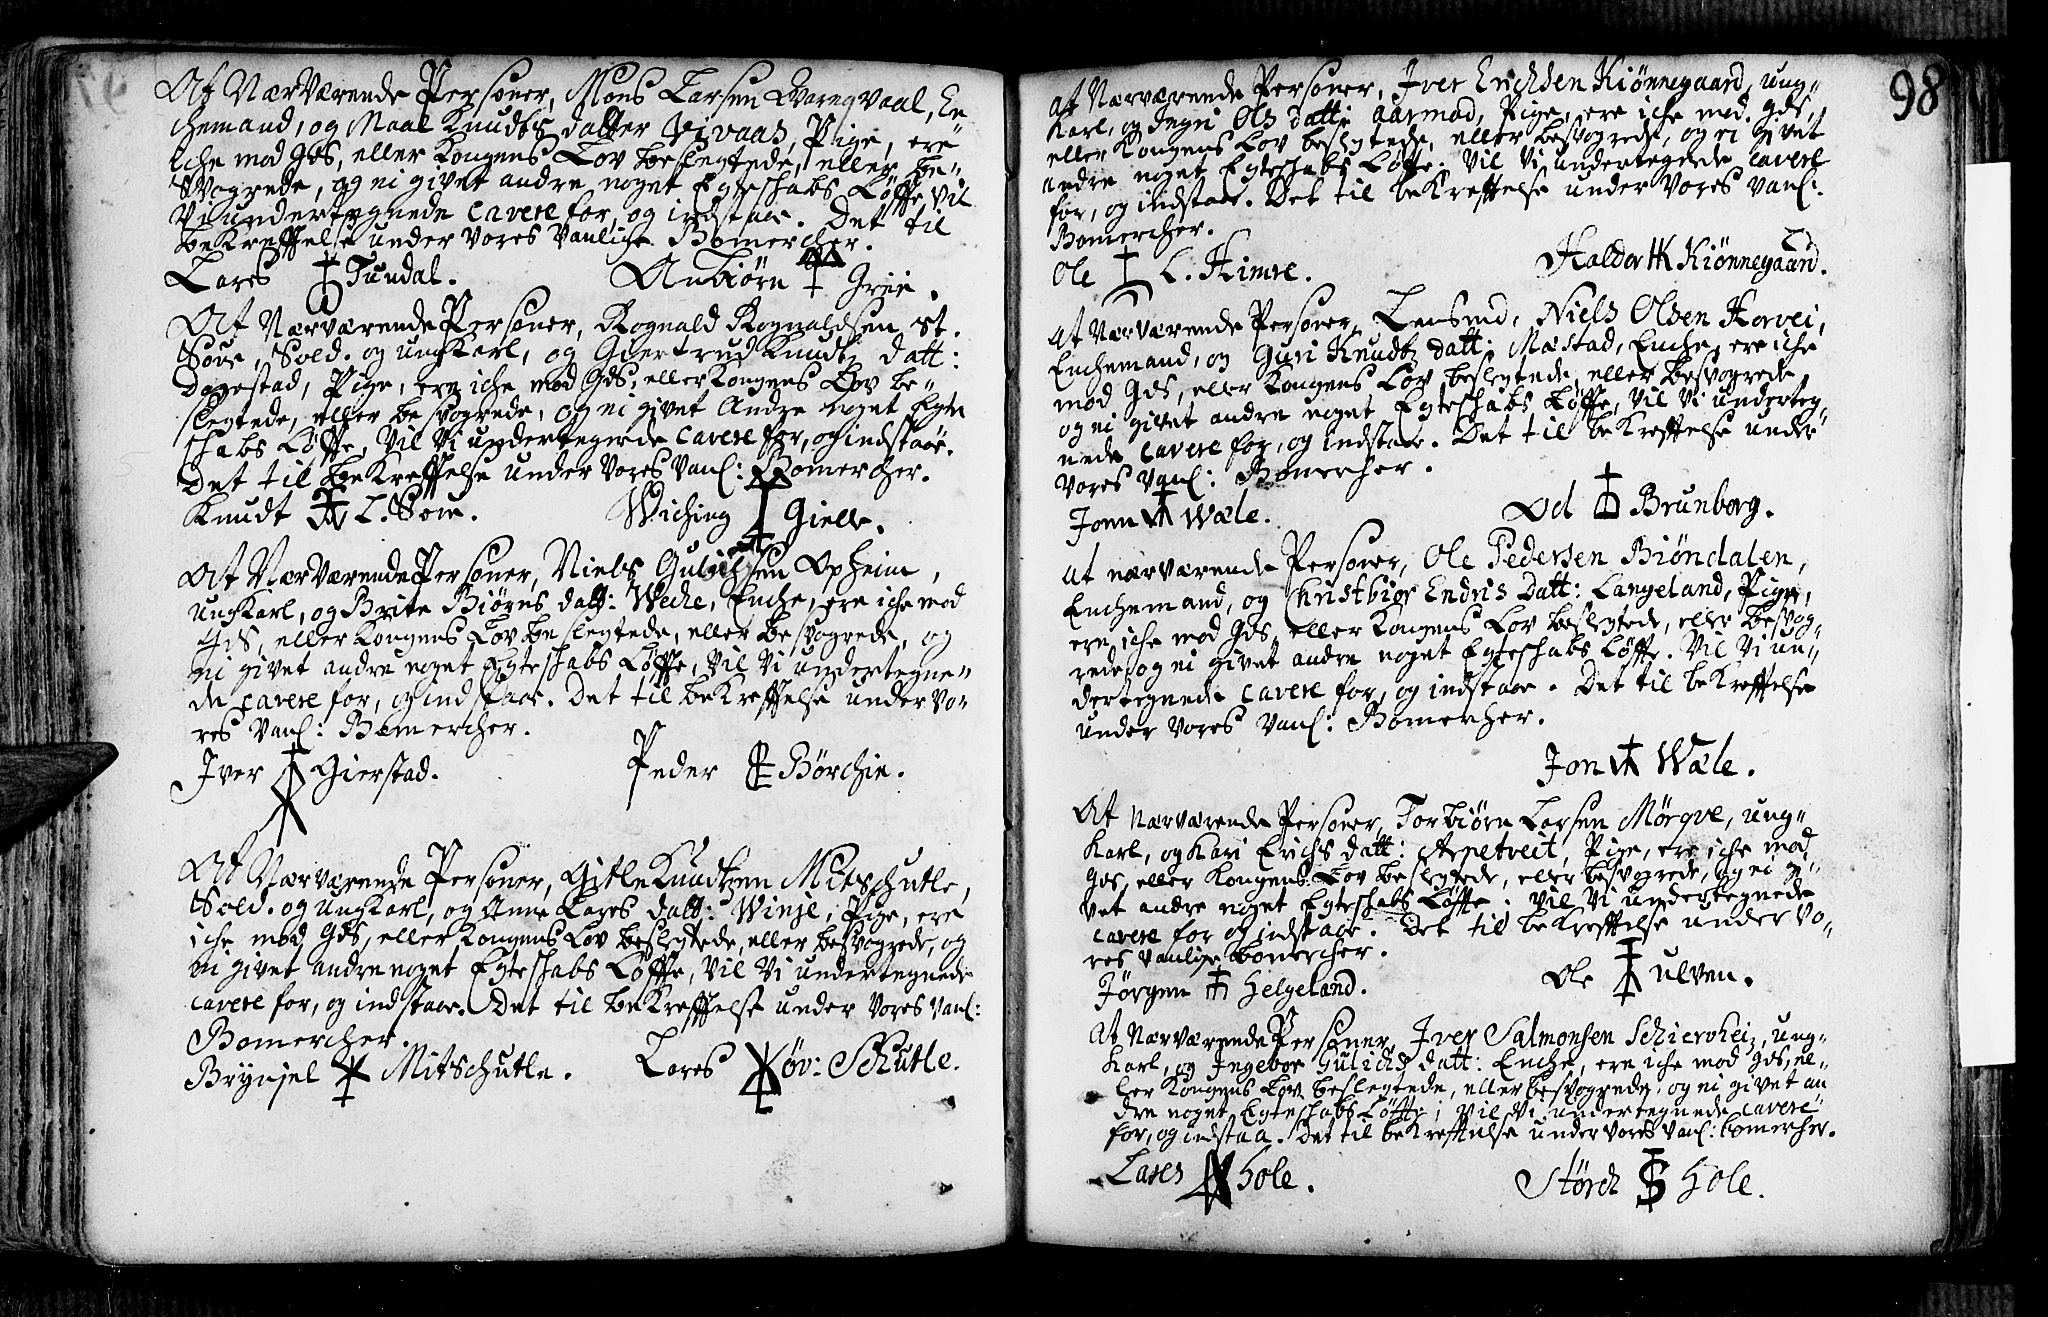 At Nærværende Personer, Mons Larsen Qvareqvaal, En
chemand, og Maal Knudts datter Vivaas, Pige, ere
iche mod Gds, eller Kongens Lov beslegtede, eller be-
svogrede, og ei givet andre noget Egteschabs Løffte, Vil
Vi undertegnede cavere for, og indstaae. Det til
beKreffelse under Vores Vanlige Bomercher.
Lares Tundal. Anbiørn Grie.
At Nærværende Personer, Rognald Rognaldsen st.
Søve, Sold. og ungKarl, og Giertrud Knudtz datt:
Dagestad, Pige, ere iche mod Gds, eller Kongens Lov be-
slegtede, eller besvogrede, og ei givet Andre noget Egte
schabs Løffte, Vil Vi undertegnede cavere for, og indstaae.
Det til beKreffelse under Vores Vanl: Bomercher.
Knudt L. Søve. Wiching Gielle.
At Nærværende Personer, Niels Gulichsen Opheim,
ungKarl, og Brite Biørns datt: Weche, Enche, ere iche mod
Gds, eller Kongens Lov beslegtede, eller besvogrede, og
ei givet andre noget Egteschabs Løffte, Vil Vi undertegne-
de cavere for, og indstaae. Det til beKreffelse under Vo-
res Vanl: Bomercher.
Iver Gierstad. Peder Børchie.
At Nærværende Personer, Gitle Knudtzen Mitschutle,
Sold. og ungKarl, og Anne Lares datt: Winje, Pige, ere
iche mod Gds, eller Kongens Lov beslegtede, eller besvogrede, og
ei givet andre noget Egteschabs Løffte, Vil Vi undertegnede
cavere for, og indstaae. Det til beKreffelse under Vores Vanl:
Bomercher.
Brynjel Mitschutle. Lares øv: Schutle.
98
At Nærværende Personer, Iver Erichsen Kiønnegaard, ung-
Karl, og Ols datt: Aarmod, Pige, ere iche mod Gds,
eller Kongens Lov beslegtede, eller besvogrede, og ei givet
andre noget Egteschabs Løffte. Vil Vi undertegnede cavere
for, og indstaae. Det til beKreffelse under Vores Vanl:
Bomercher.
Ole L. Himle. Haldor HK Kiønnegaard.
At Nærværende Personer, Lensmd, Niels Olsen Horvei,
Enchemand, og Guri Knudtz datt: Mæstad, Enche, ere iche
mod Gds, eller Kongens Lov beslegtede, eller besvogrede,
og ei givet andre noget Egteschabs Løffte, Vil Vi underteg-
nede cavere for, og indstaae. Det til beKreffelse under
Vores Vanl: Bomercher.
Jonn Wæle. Od Brunborg.
At nærværende Personer, Ole Pedersen Biøndalen,
Enchemand, og Christbior Endris Datt: Langeland, Pige,
ere iche mod Gds, eller Kongens Lov beslegtede, eller besvog-
rede, og ei givet andre noget Egteschabs Løffte. Vil Vi un-
dertegnede cavere for, og indstaae. Det til beKreffelse
under Vores Vanl: Bomercher.
Jon Wæle.
At Nærværende Personer, Torbiørn Larsen Mørqve, ung-
Karl, og Kari Erichs datt: Arnetveit, Pige, ere iche mod
Gds, eller Kongens Lov beslegtede, eller besvogrede, og ei gi-
vet andre noget Egteschabs Løffte. Vil Vi undertegnede
cavere for og indstaae. Det til beKreffelse under Vo-
res Vanlige bomercher.
Jørgen Helgeland. Ole ulven.
At Nærværende Personer, Iver Salmonsen Schierveit, ung-
Karl, og Ingebor Gulichs datt: Enche, ere iche mod Gds, el-
ler Kongens Lov beslegtede, eller besvogrede, og ei givet an
dre noget Egteschabs Løffte, Vil Vi undertegnede cavere
for, og indstaa. Det til beKreffelse under Vores Vanl: bomercher.
Lares Hole. Størch Hole.